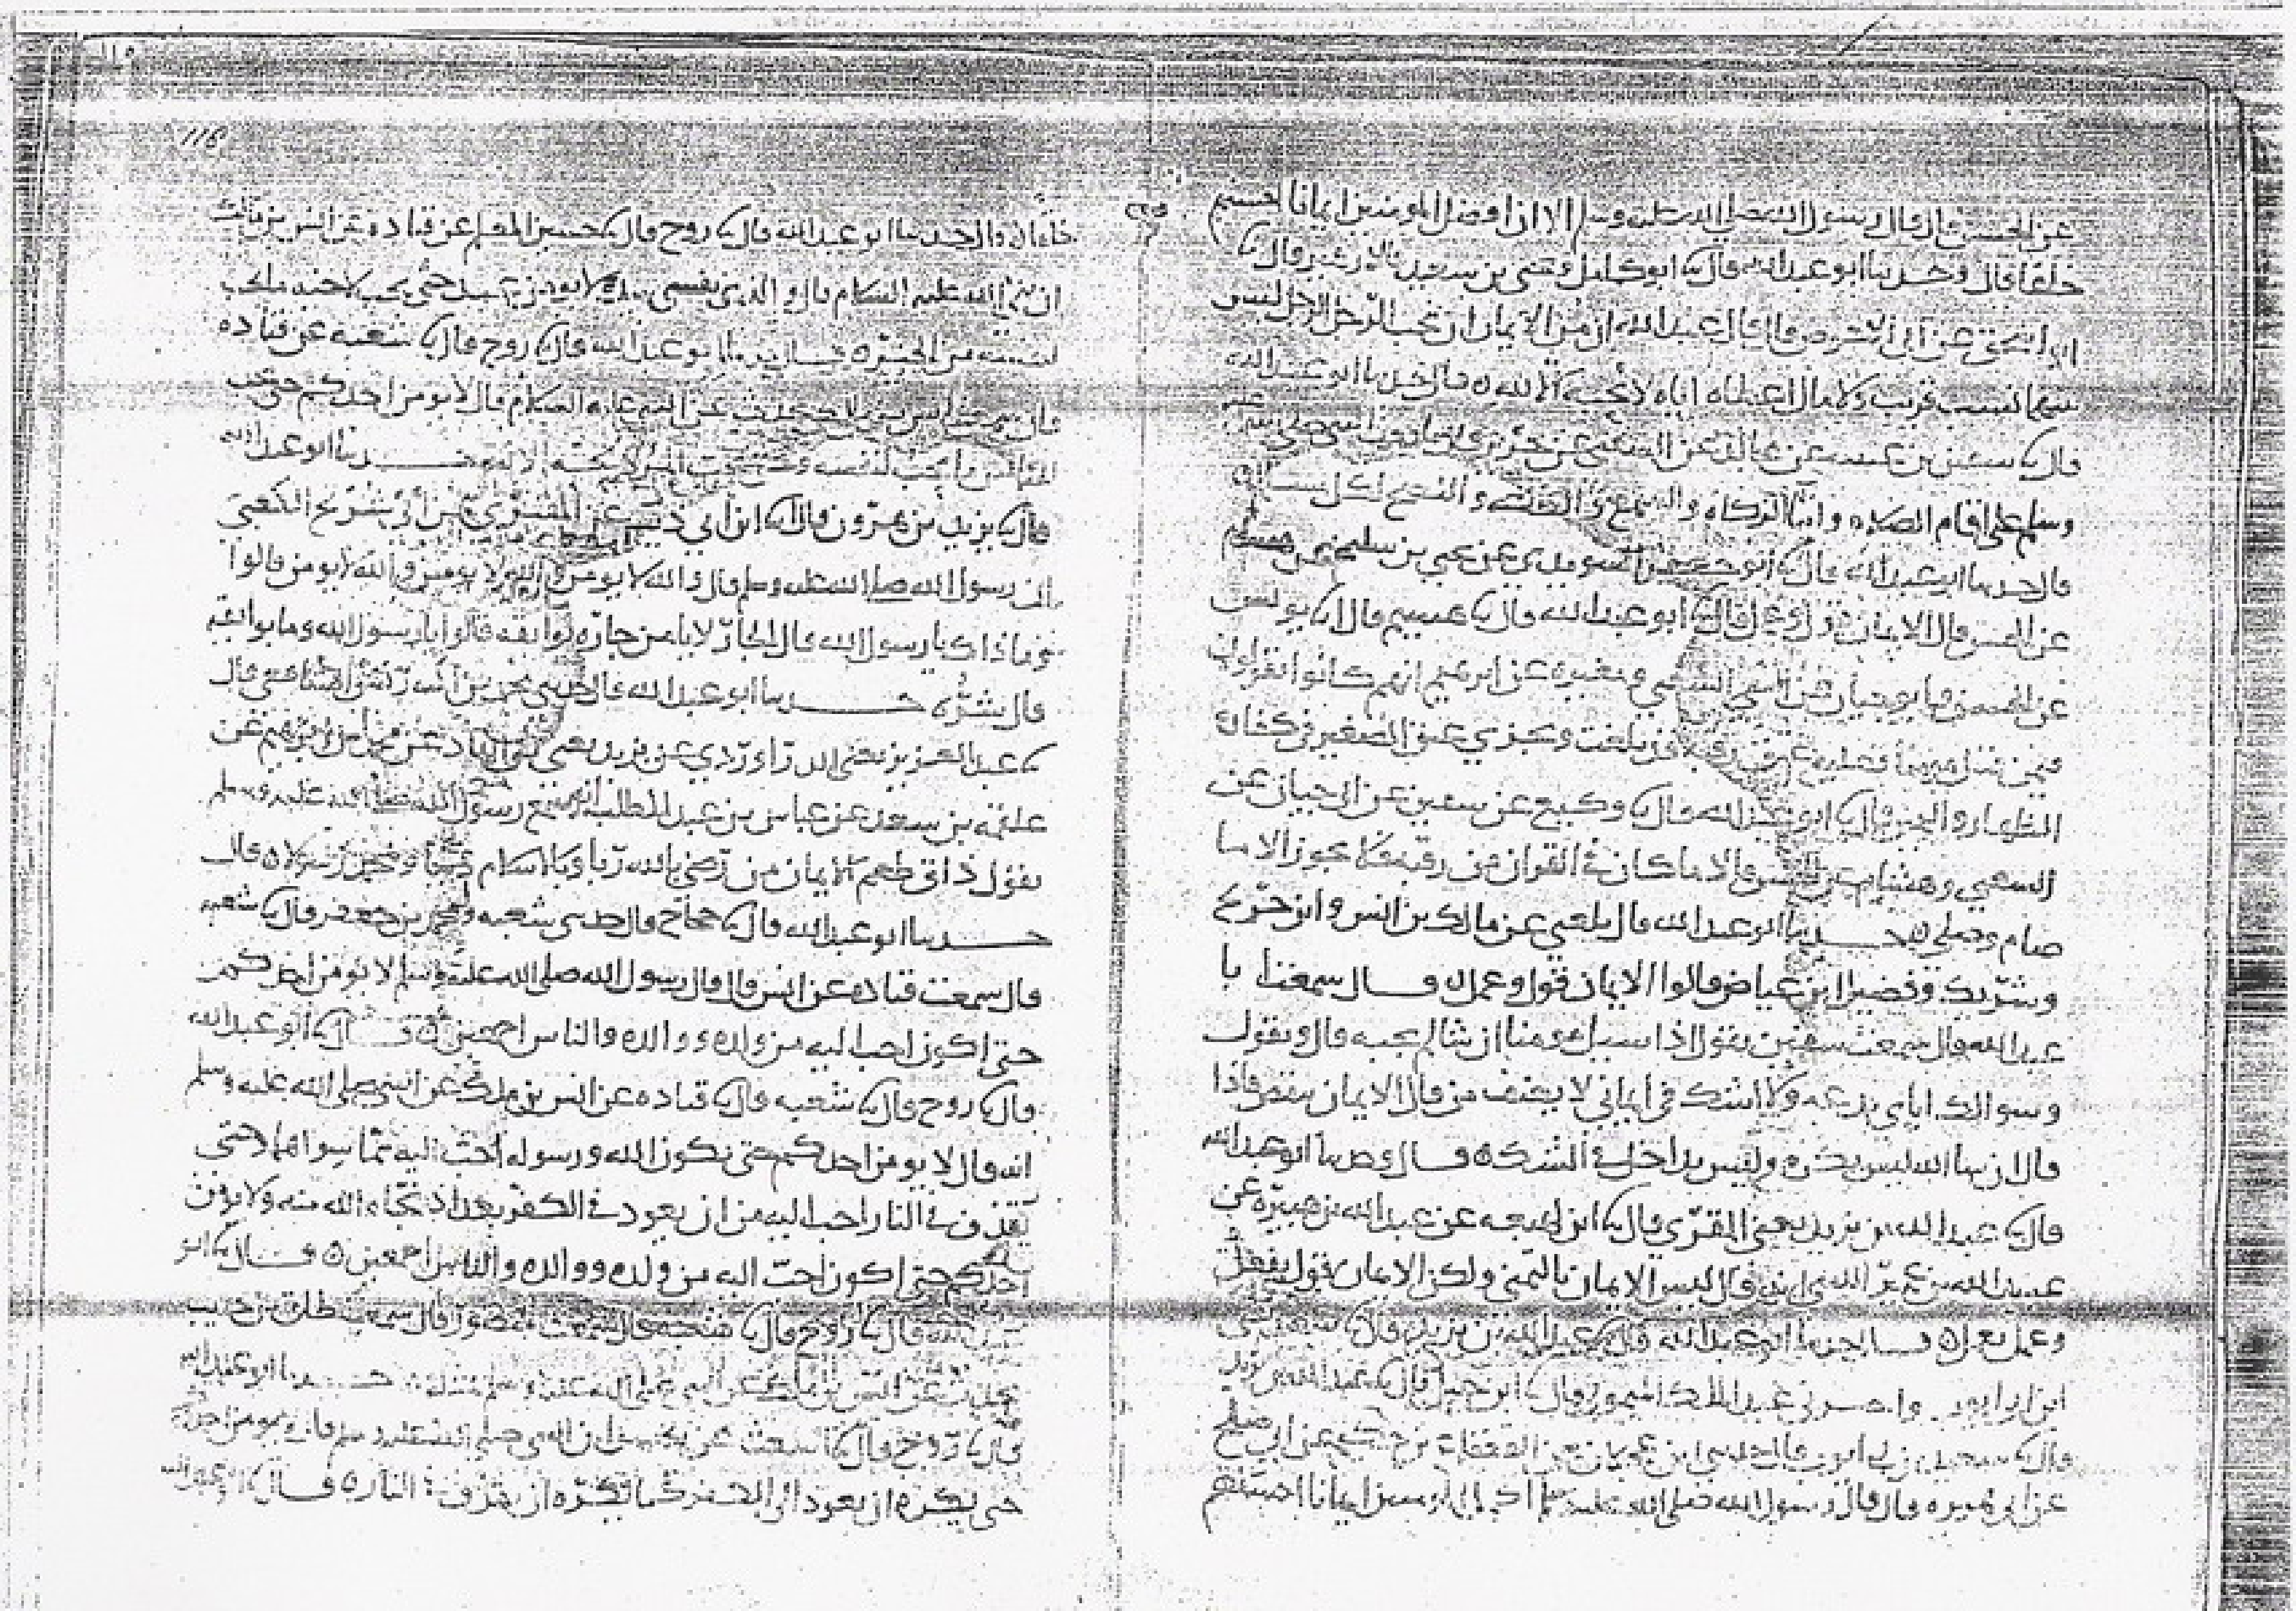 عن الحسن قال قال رسول الله صلى الله عليه وسلم الا ان افضل المومنين ايمانا احسنهم
خلقا قال وحدثنا ابو عبد الله قال ابو كامل
عن ابي الاحوص قال قال عبد الله ان من الايمان ان يحب الرجل الرجل ليس
بينهما نسب قريب ولا مال اعطاه اياه لا يحبه الا لله ٥ قال حدثنا ابو عبد الله
قال سفين بن عيينه عن مجالد عن الشعبي عن جرير
وسلم على اقام الصلاه وايتا الزكاه والسمع والطاعة والنصح لكل مسلم
قال حدثنا ابو عبد الله قال ابو جعفر السويدي عن يحيى بن سليم عن هشام
عن الحسن قال الايمان قول وعمل قال ابو عبد الله قال هشيم قال يونس
عن الحسن وابو حيان عن الشعبي ومغيره عن ابرهيم انهم كانوا يقولون
فمن قتل مومنا فعليه عتق رقبة قد بلغت ويجزي عتق الصغير في كفارة
الظهار واليمين قال ابو عبد الله قال وكيع عن سفين عن ابي حيان عن
الشعبي وهشام عن الحسن قالا ما كان في القران من رقبة فلا يجوز الا ما
صام وصلى ٥ حدثنا ابو عبد الله قال بلغني عن مالك بن انس وابن جريج
وشريك وفضيل بن عياض قالوا الايمان قول وعمل ٥ قال سمعت ابا
عبد الله قال سمعت سفين يقول اذا سيل مومن ان شا لم يجبه قال ويقول
وسوالك اياي بدعه ولا اشك في ايماني لا يعنف من قال الايمان ينقص فاذا
قال ان شا الله ليس يكره وليس بداخل في الشك ٥ قال وحدثنا ابو عبد الله
قال عبد الله بن يزيد يعني المقري قال ابن لهيعه عن عبد الله بن هبيره عن
عبيد بن عمير الليثي انه قال ليس الايمان بالتمني ولكن الايمان قول يعقل
وعمل يعمل ٥ قال حدثنا ابو عبد الله قال عبد الله بن يزيد قال
قال سعيد بن ابي ايوب قال حدثني ابن عجلان عن القعقاع بن حكيم عن ابي صلح
عن ابي هريره قال قال رسول الله صلى الله عليه وسلم اكمل المومنين ايمانا احسنهم
خلقا ٥ قال وحدثنا ابو عبد الله قال روح قال حسين المعلم عن قتاده عن انس بن مالك
ان نبي الله عليه السلام قال والذي نفسي بيده لا يومن عبد حتى يحب لاخيه ما يحب
لنفسه من الخير ٥ حدثنا ابو عبد الله قال روح قال شعبه عن قتاده
قال سمعت انس بن ملك يحدث عن النبي عليه السلام قال لا يومن احدكم حتى يحب
للناس ما يحب لنفسه وحتى يحب المرء لا يحبه الا لله حدثنا ابو عبد الله
قال يزيد بن هرون قال ابن ابي ذيب عن المقبري عن ابي شريح الكعبي
ان رسول الله صلى الله عليه وسلم قال والله لا يومن والله لا يومن والله لا يومن قالوا
وما ذاك يا رسول الله قال الجار لا يامن جاره بوايقه قالوا يا رسول الله وما بوايقه
قال شره حدثنا ابو عبد الله قال حدثني محمد بن ادريس الشافعي قال
عبد العزيز يعني الدراوردي عن يزيد يعني ابن الهاد عن محمد بن ابرهيم عن
عامر بن سعد عن عباس بن عبد المطلب انه سمع رسول الله صلى الله عليه وسلم
يقول ذاق طعم الايمان من رضي بالله ربا وبالاسلام دينا وبمحمد رسولا ٥ قال
حدثنا ابو عبد الله قال حجاج قال حدثني شعبه ومحمد بن جعفر قال شعبه
قال سمعت قتاده عن انس قال قال رسول الله صلى الله عليه وسلم لا يومن احدكم
حتى اكون احب اليه من ولده ووالده والناس اجمعين ٥ قال ابو عبد الله
قال روح قال شعبه قال قتاده عن انس بن ملك عن النبي صلى الله عليه وسلم
انه قال لا يومن احدكم حتى يكون الله ورسوله احب اليه مما سواهما وحتى
يقذف في النار احب اليه من ان يعود في الكفر بعد اذ نجاه الله منه ولا يومن
احدكم حتى اكون احب اليه من ولده ووالده والناس اجمعين ٥ قال ابو
عبد الله قال روح قال شعبه قال سمعت منصور قال سمعت طلق بن حبيب
يحدث عن انس بن ملك عن النبي صلى الله عليه وسلم مثله حدثنا ابو عبد الله
قال روح قال اشعث عن الحسن ان النبي صلى الله عليه وسلم قال لا يومن احدكم
حتى يكره ان يعود الى الكفر كما يكره ان يقذف في النار ٥ قال ابو عبد الله